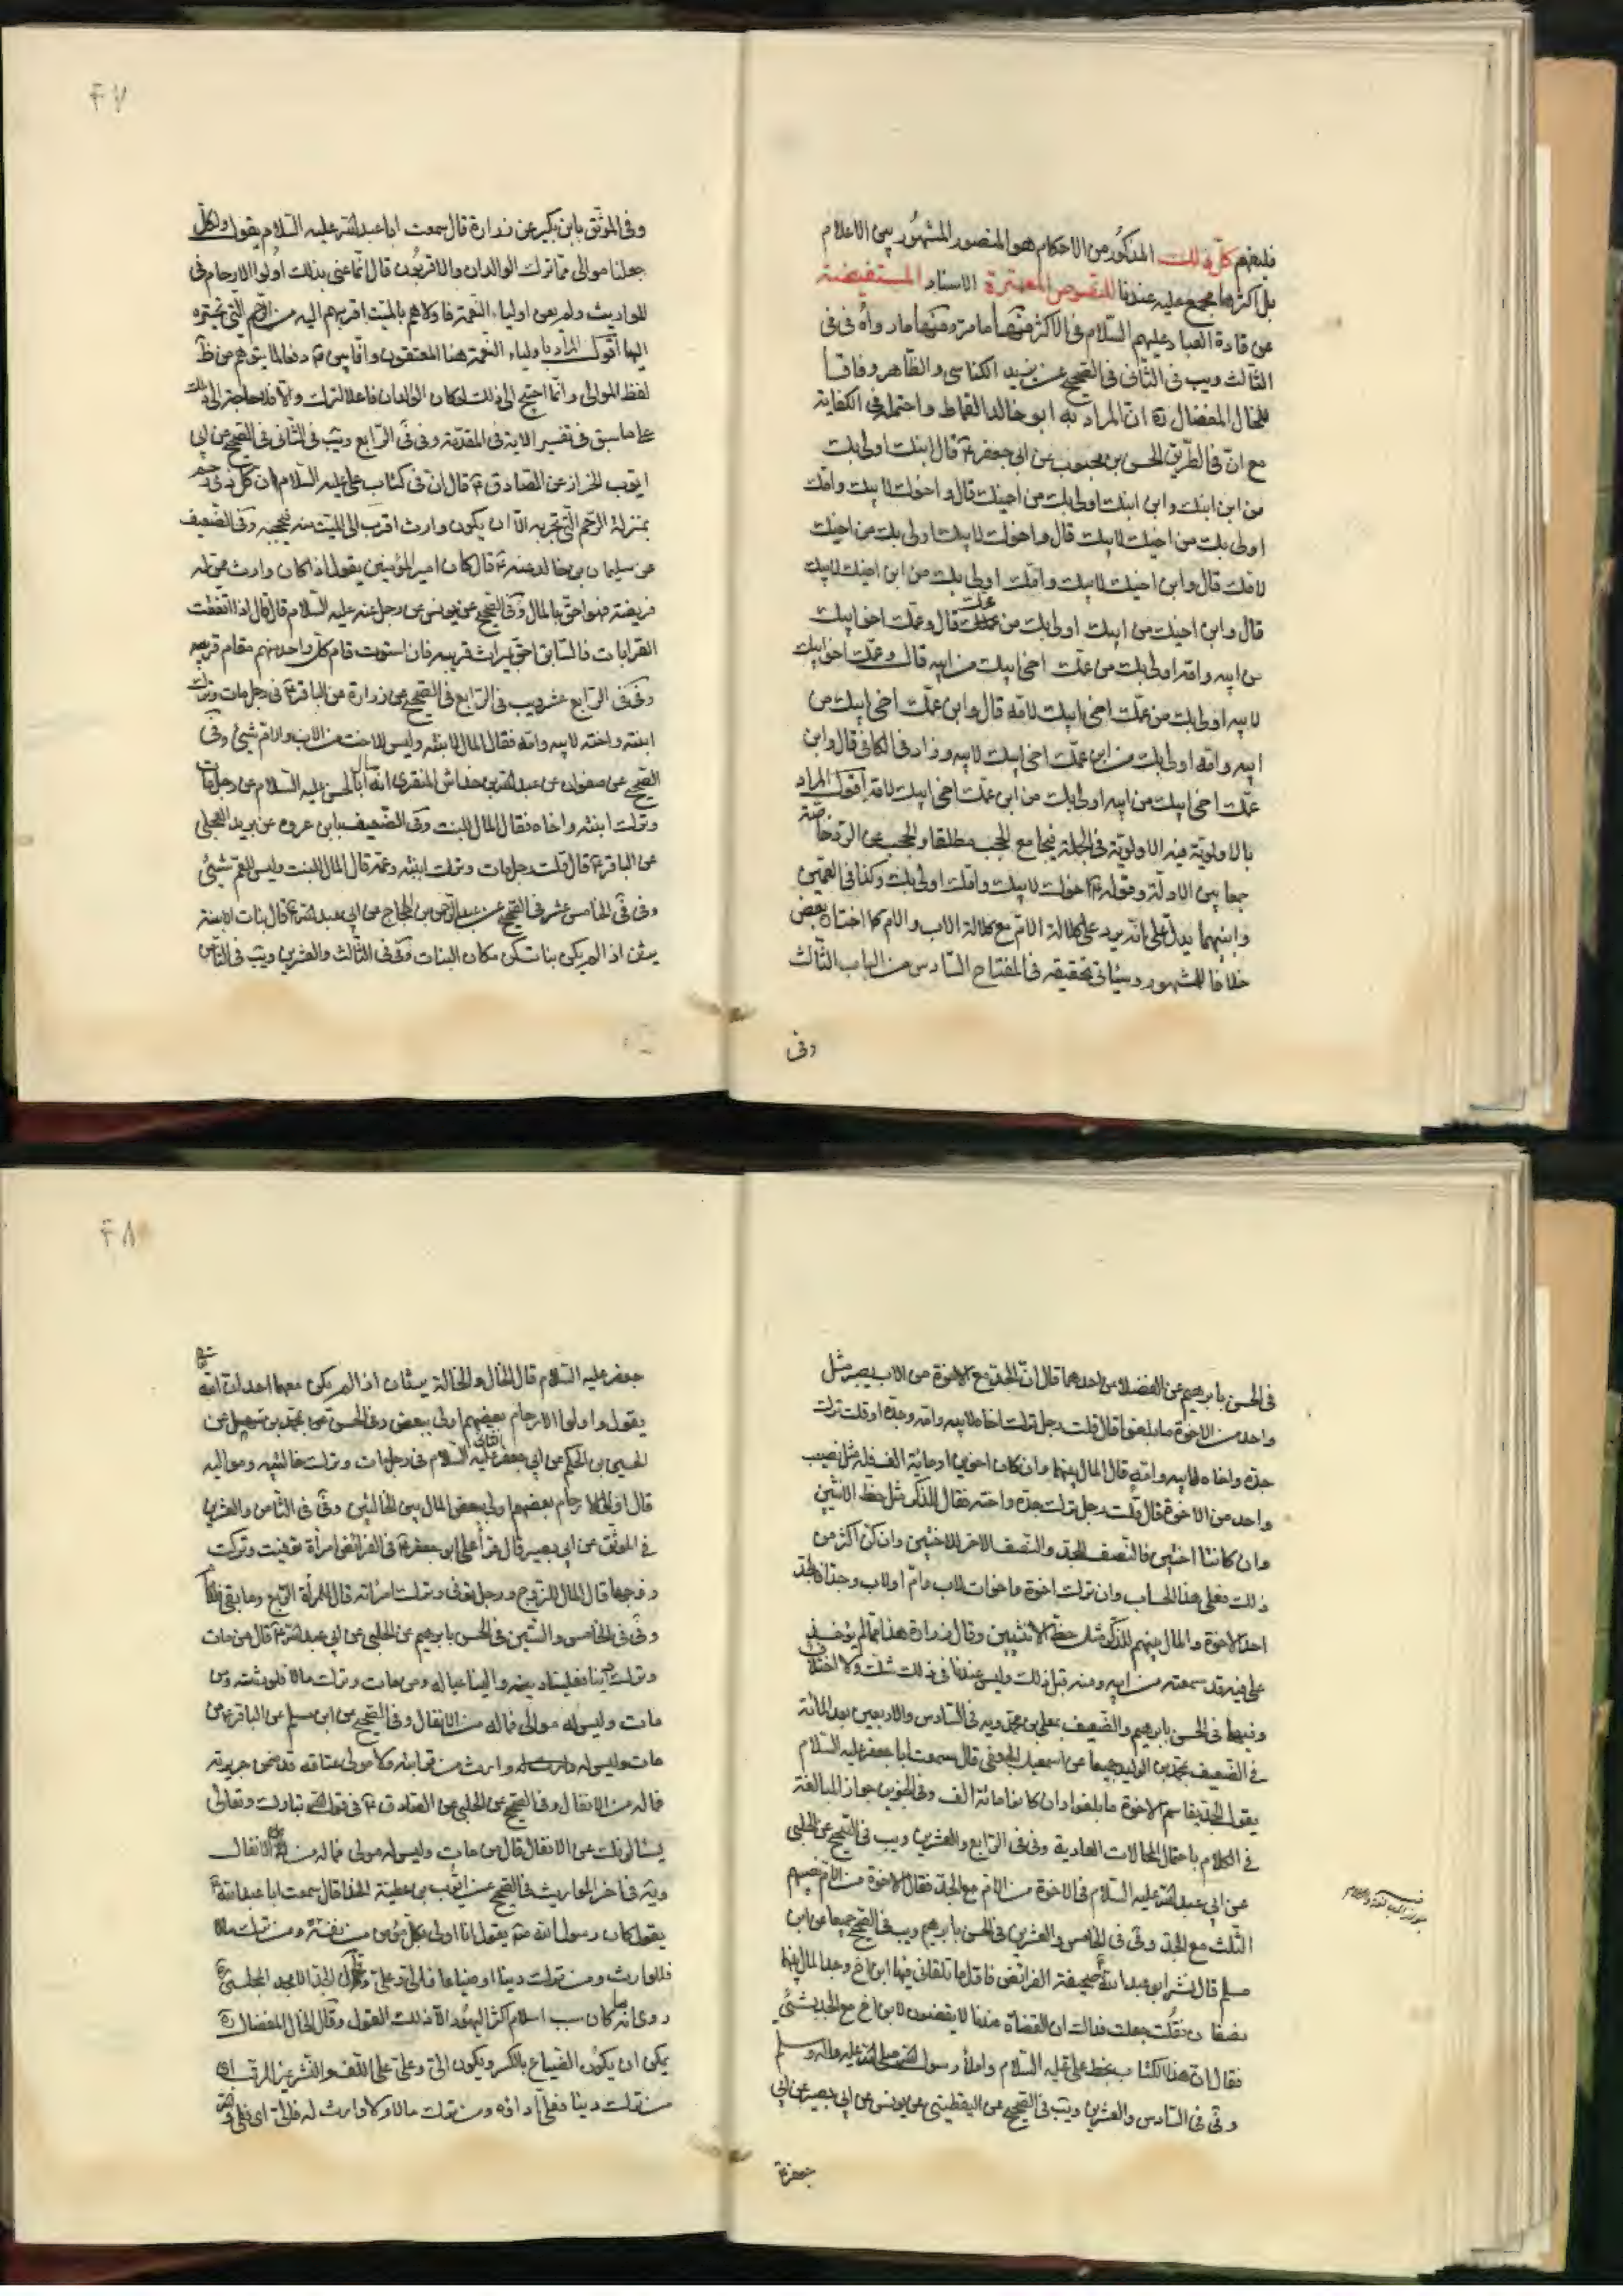 فليفهم كلّ ذلك المذكور من الاحكام هو المنصور المشهور بين الاعلام
بل اكثرها مجمع عليه عندنا للنصوص المعتبرة الاسناد المستفيضة
عن قادة العباد عليهم السّلام فى الاكثر منها ما مرّ ومنها ما رواه فى فى
الثالث ويب فى الثّانى فى الصّحيح عن يزيد الكناسى والظّاهر وفاقا
للخال المفضال ره انّ المراد به ابو خالد القماط واحتمله فى الكفاية
مع انّ فى الطّريق الحسن بن محبوب عن ابى جعفر ع قال ابنك اولى بك
من ابن ابنك وابن ابنك اولى بك من اخيك قال واخوك لابيك وامّك
اولى بك من اخيك لابيك قال واخوك لابيك اولى بك من اخيك
لامّك قال وابن اخيك لابيك وامّك اولى بك من ابن اخيك لابيك
قال وابن اخيك من ابيك اولى بك من عمّك قال وعمّك اخو ابيك
من ابيه وامّه اولى بك من عمّك اخى ابيك من ابيه قال وعمّك اخو ابيك
لابيه اولى بك من عمّك اخى ابيك لامّه قال وابن عمّك اخى ابيك من
ابيه وامّه اولى بك من ابن عمّك اخى ابيك لابيه وزاد فى الكافى قال وابن
عمّك اخى ابيك من ابيه اولى بك من ابن عمّك اخى ابيك لامّه اقول المراد
بالاولويّة فيه الاولويّة فى الجملة فيجامع الحجب مطلقا والحجب عن الرّد خاصّة
جمعا بين الادلّة وقوله ع اخوك لابيك وامّك اولى بك وكذا فى العمّين
وابنيهما يدلّ على انّه يرد على كلالة الامّ مع كلالة الاب والام كما اختاره بعض
خلافا للمشهور وسيأتى تحقيقه فى المفتاح السّادس من الباب الثّالث
وفى
۴۷
وفى الموثّق بابن بكير عن زرارة قال سمعت ابا عبد الله عليه السّلام يقول ولكلّ
جعلنا موالى ممّا ترك الوالدان والاقربون قال انّما عنى بذلك اولوا الارحام فى
المواريث ولم يعن اولياء النّعمة فاولاهم بالميّت اقربهم اليه من الرّحم الّتى تجرّه
اليها اقول المراد باولياء النّعمة هنا المعتقون وانّما بيّن ع دفعا لما يتوهّم من ظ
لفظ المولى وانّما احتيج الى ذلك لو كان الوالدان فاعلا لترك والّا فلا حاجة الى ذلك
على ما سبق فى تفسير الاية فى المقدّمة وفى فى الرّابع ويب فى الثانى فى الصّحيح عن ابى
ايّوب الخزاز عن الصّادق ع قال انّ فى كتاب على عليه السّلام ان كلّ ذى رحم
بمنزلة الرّحم الّتى تجرّ به الّا ان يكون وارث اقرب الى الميّت منه فيحجبه وفى الضّعيف
عن سليمان بن خالد عنه ع قال كان امير المؤمنين يقول اذا كان وارث ممّن له
فريضة فهو احقّ بالمال وفى الصّحيح عن يونس عن رجل عنه عليه السّلام قال قال اذا التفّت
القرابات فالسّابق احقّ بميراث قريبه فان استوت قام كلّ واحد منهم مقام قريبه
وفى فى الرّابع عشر ويب فى الرّابع فى الصّحيح عن زرارة عن الباقر ع فى رجل مات وترك
ابنته واخته لابيه وامّه فقال المال لابنته وليس للاخت من الاب والام شيئ وفى
الصّحيح عن صفوان عن عبد الله بن خداش المنقرى انّه سأل ابا الحسن عليه السّلام عن رجل مات
وترك ابنته واخاه فقال المال للبنت وفى الضّعيف بابن عروه عن بريد العجلى
عن الباقر ع قال قلت رجل مات وترك ابنته وعمّه قال المال للبنت وليس للعمّ شيئ
وفى فى الخامس عشر فى الصّحيح عن عبد الرّحمن بن الحجاج عن ابى عبد الله ع قال بنات الابنة
يرثن اذا لم يكن بنات كن مكان البنات وفى فى الثّالث والعشرين ويب فى الثّامن
فى الحسن بابرهيم عن الفضلاء عن احدهما قال انّ الجدّ مع الاخوة من الاب يصير مثل
واحد من الاخوة ما بلغوا قال قلت رجل ترك اخاه لابيه وامّه وجدّه او قلت ترك
جدّه واخاه لابيه وامّه قال المال بينهما وان كان اخوين او مائة الف فله مثل نصيب
واحد من الاخوة قال قلت رجل ترك جدّه واخته فقال للذّكر مثل حظّ الانثيين
وان كانتا اختين فالنّصف للجدّ والنّصف الاخر للاختين وان كنّ اكثر من
ذلك فعلى هذا الحساب وان ترك اخوة واخوات لاب وامّ او لاب وجدّا فالجدّ
احد الاخوة والمال بينهم للذّكر مثل حظّ الانثيين وقال زرارة هذا ممّا لم يؤخذ
علىّ فيه قد سمعته من ابيه ومنه قبل ذلك وليس عندنا فى ذلك شكّ ولا اختلاف
وفيهما فى الحسن بابرهيم والضّعيف بعلى بن محمد ويه فى السّادس والاربعين بعد المائة
فى الضّعيف بمحمّد بن الوليد جميعا عن اسمعيل الجعفى قال سمعت ابا جعفر عليه السّلام
يقول الجدّ يقاسم الاخوة ما بلغوا وان كانوا مائة الف وفى الخبرين جواز المبالغة
فى الكلام باحتمال المحالات العادية وفى فى الرّابع والعشرين ويب فى الصّحيح عن الحلبى
عن ابى عبد الله عليه السّلام فى الاخوة من الامّ مع الجدّ فقال للاخوة من الامّ نصيبهم
الثّلث مع الجدّ وفى فى الخامس والعشرين فى الحسن بابرهيم ويب فى الصّحيح جميعا عن ابن
مسلم قال نشر ابو عبد الله ع صحيفة الفرائض فاوّل ما تلقانى فيها ابن اخ وجدّ المال بينهما
نصفان فقلت جعلت فداك ان القضاة عندنا لا يقضون لابن اخ مع الجدّ بشئ
فقال انّ هذا الكتاب بخط على عليه السّلام واملاء رسول الله صلى الله عليه واله وسلم
وفى فى السّادس والعشرين ويب فى الصّحيح عن اليقطينى عن يونس عن ابى بصير عن ابى
جعفر ع
جواز المبالغة فى الكلام
۴۸
جعفر عليه السّلام قال الخال والخالة يرثان اذا لم يكن معهما احد ان الله
يقول واولوا الارحام بعضهم اولى ببعض وفى الحسن عن محمّد بن سهيل عن
الحسين بن الحكم عن ابى جعفر الثانى عليه السّلام فى رجل مات وترك خالتيه ومواليه
قال اولوا الارحام بعضهم اولى ببعض المال بين الخالتين وفى فى الثّامن والعشرين
فى الموثّق عن ابى بصير قال قرأ علىّ ابو جعفر ع فى الفرائض امرأة توفيت وتركت
زوجها قال المال للزّوج ورجل توفى وترك امرأته قال للمرأة الرّبع وما بقى فللامام
وفى فى الخامس والستّين فى الحسن بابرهيم عن الحلبى عن ابى عبد الله ع قال من مات
وترك دينا فعلينا دينه والينا عياله ومن مات وترك مالا فلورثته ومن
مات وليس له موالى فماله من الانفال وفى الصّحيح عن ابن مسلم عن الباقر ع من
مات وليس له وارث من قرابته ولا مولى عتاقه قد ضمن جريرته
فماله من الانفال وفى الصّحيح عن الحلبى عن الصّادق ع فى قول الله تبارك وتعالى
يسئلونك عن الانفال قال من مات وليس له مولى فماله من الانفال
وفيه فى اخر المواريث فى الصّحيح عن ايّوب بن عطيّة الحذّاء قال سمعت ابا عبد الله ع
يقول كان رسول الله ص يقول انا اولى بكلّ مؤمن من نفسه ومن ترك مالا
فللوارث ومن ترك دينا او ضياعا فالىّ وعلىّ وقال الجدّ الامجد المجلسى ره
روى انّه ما كان سبب اسلام اكثر اليهود الّا ذلك القول وقال الخال المفضال ره
يمكن ان يكون الضياع بالكسر ويكون الىّ وعلىّ على اللّف والنّشر غير المرتّب اى
من ترك دينا فعلىّ اداؤه ومن ترك مالا ولا وارث له فالىّ اى فلى